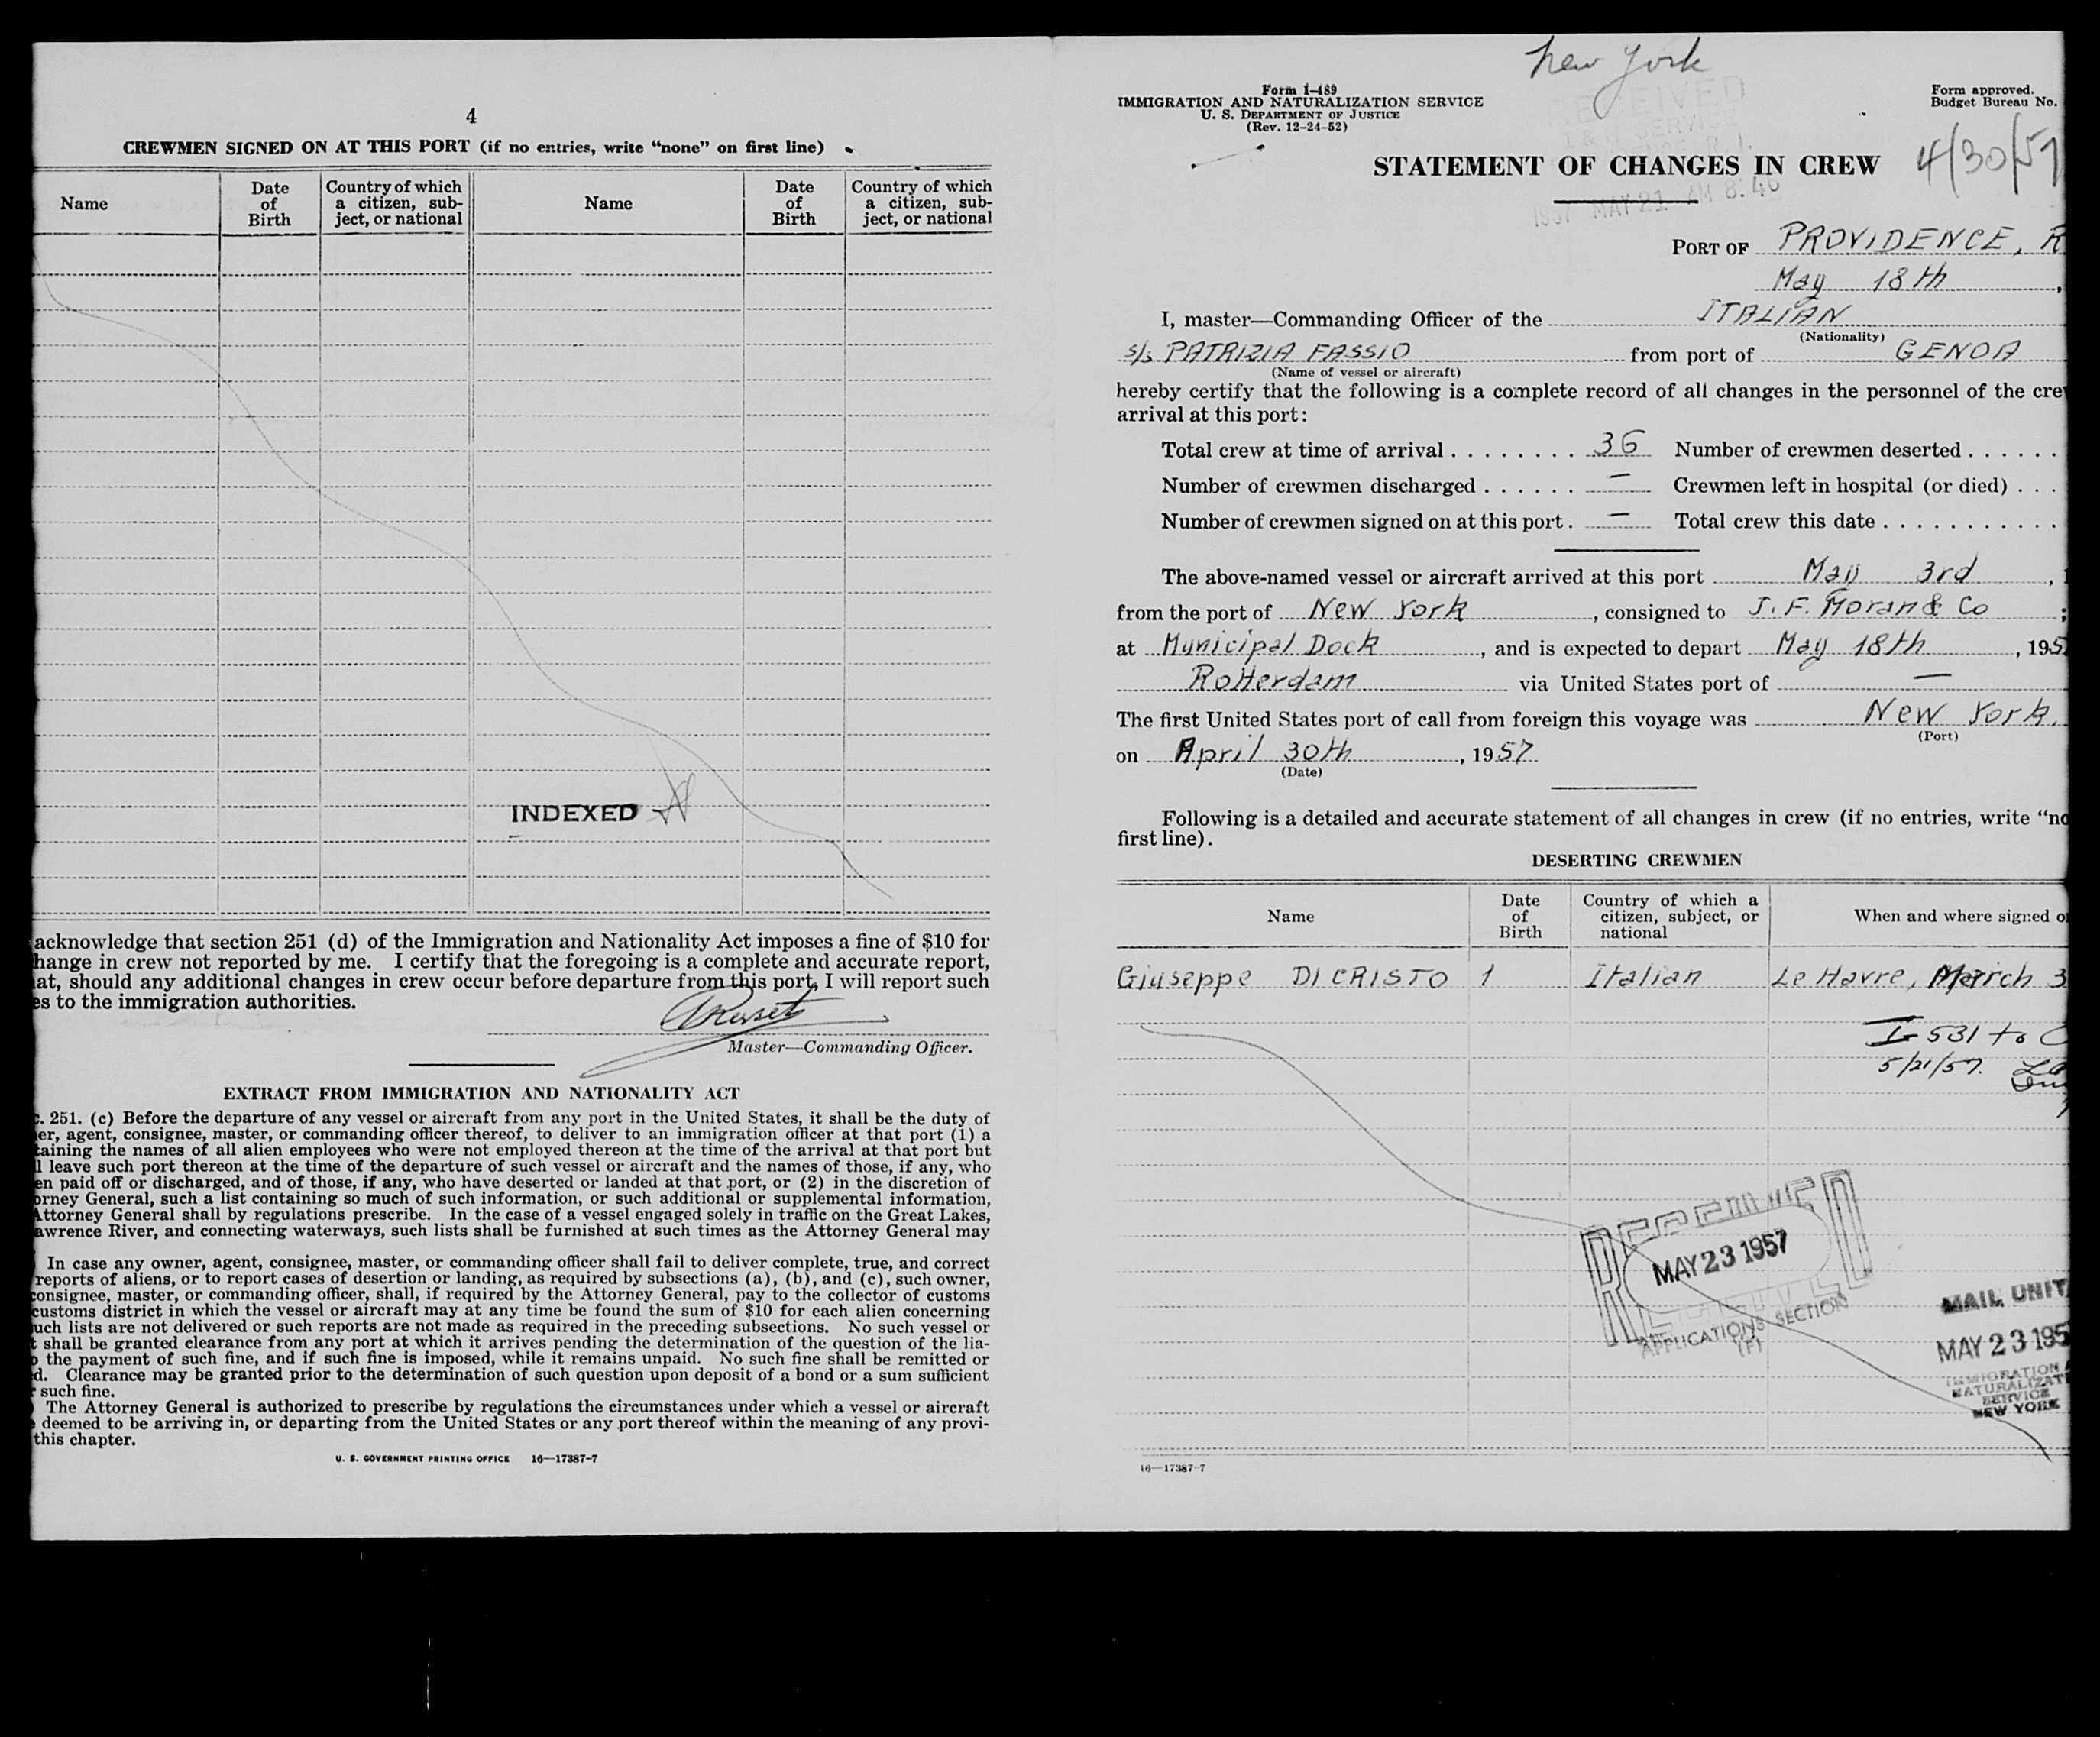 4
CREWMEN SIGNED ON AT THIS PORT (if no entries, write “none” on first line)
Name
Date of Birth
Country of which a citizen, sub-ject, or national
Name
Date of Birth
Country of which a citizen, sub-ject, or national
INDEXED
acknowledge that section 251 (d) of the Immigration and Nationality Act imposes a fine of $10 for
hange in crew not reported by me. I certify that the foregoing is a complete and accurate report,
at, should any additional changes in crew occur before departure from this port, I will report such
es to the immigration authorities.
Master—Commanding Officer.
EXTRACT FROM IMMIGRATION AND NATIONALITY ACT
. 251. (c) Before the departure of any vessel or aircraft from any port in the United States, it shall be the duty of
er, agent, consignee, master, or commanding officer thereof, to deliver to an immigration officer at that port (1) a
taining the names of all alien employees who were not employed thereon at the time of the arrival at that port but
l leave such port thereon at the time of the departure of such vessel or aircraft and the names of those, if any, who
en paid off or discharged, and of those, if any, who have deserted or landed at that port, or (2) in the discretion of
orney General, such a list containing so much of such information, or such additional or supplemental information,
Attorney General shall by regulations prescribe. In the case of a vessel engaged solely in traffic on the Great Lakes,
awrence River, and connecting waterways, such lists shall be furnished at such times as the Attorney General may
In case any owner, agent, consignee, master, or commanding officer shall fail to deliver complete, true, and correct
reports of aliens, or to report cases of desertion or landing, as required by subsections (a), (b), and (c), such owner,
consignee, master, or commanding officer, shall, if required by the Attorney General, pay to the collector of customs
customs district in which the vessel or aircraft may at any time be found the sum of $10 for each alien concerning
uch lists are not delivered or such reports are not made as required in the preceding subsections. No such vessel or
t shall be granted clearance from any port at which it arrives pending the determination of the question of the lia-
o the payment of such fine, and if such fine is imposed, while it remains unpaid. No such fine shall be remitted or
d. Clearance may be granted prior to the determination of such question upon deposit of a bond or a sum sufficient
r such fine.
) The Attorney General is authorized to prescribe by regulations the circumstances under which a vessel or aircraft
e deemed to be arriving in, or departing from the United States or any port thereof within the meaning of any provi-
this chapter.
U. S. GOVERNMENT PRINTING OFFICE 16—17387-7
New York
Form I-489
IMMIGRATION AND NATURALIZATION SERVICE
U. S. DEPARTMENT OF JUSTICE
(Rev. 12-24-52)
Form approved.
Budget Bureau No.
RECEIVED
1957 MAY 21 AM 8:46
STATEMENT OF CHANGES IN CREW
4/30/57
PORT OF PROVIDENCE, R
May 18th ,
I, master—Commanding Officer of the ITALIAN
(Nationality)
s/s PATRIZIA FASSIO from port of GENOA
(Name of vessel or aircraft)
hereby certify that the following is a complete record of all changes in the personnel of the cre
arrival at this port:
Total crew at time of arrival . . . . . . . . 36 Number of crewmen deserted . . . . . .
Number of crewmen discharged . . . . . . — Crewmen left in hospital (or died) . . .
Number of crewmen signed on at this port . — Total crew this date . . . . . . . . . . .
The above-named vessel or aircraft arrived at this port May 3rd ,
from the port of New York , consigned to J. F. Moran & Co ;
at Municipal Dock , and is expected to depart May 18th , 195
Rotterdam via United States port of —
The first United States port of call from foreign this voyage was New York.
(Port)
on April 30th , 1957
(Date)
Following is a detailed and accurate statement of all changes in crew (if no entries, write “no
first line).
DESERTING CREWMEN
Name
Date of Birth
Country of which a citizen, subject, or national
When and where signed o
Giuseppe DI CRISTO 1 Italian Le Havre, March 3
I-531 to
5/21/57.
RECEIVED
MAY 23 1957
APPLICATIONS SECTION
(F)
MAIL UNIT
MAY 23 195
IMMIGRATION
NATURALIZAT
SERVICE
NEW YORK
16—17387-7